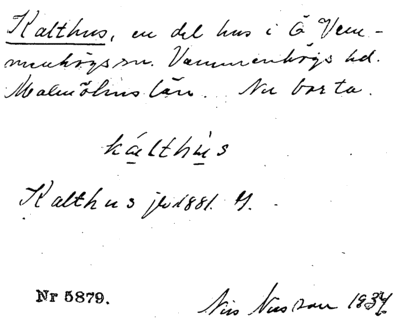 Kalthus, en del hus i Ö Vem-
menhögs sn. Vemmenhögs hd.
Malmöhus län. Nu borta.
kálthùs
Kalthus jb 1881.
Nr 5879.
Nils Nilsson 1934